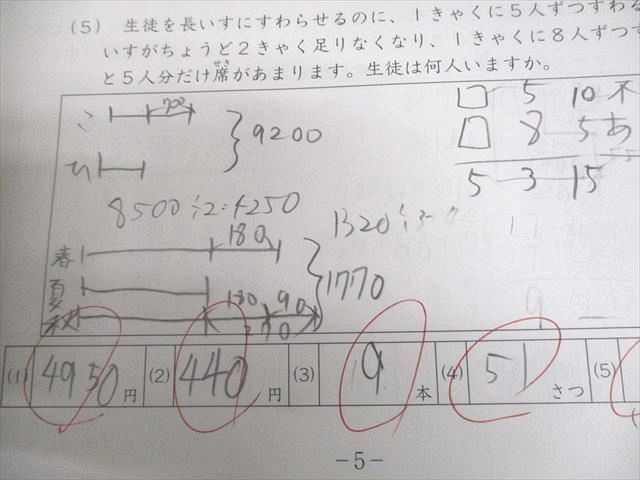 (5) 生徒を長いすにすわらせるのに、1きゃくに5人ずつすわる
いすがちょうど2きゃく足りなくなり、1きゃくに8人ずつす
と5人分だけ席があまります。生徒は何人いますか。
せき
こ 700
ひ
9200
8500÷2=4250
□ 5 10 不
□ 8 5 あ
5 3 15
1320÷3=44
春 180
夏
秋 180 90
1770
(1) 4950円 (2) 440円 (3) 9本 (4) 51さつ (5)
-5-